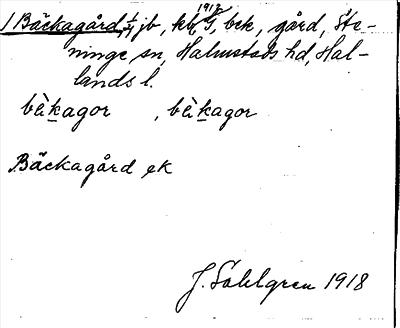 1 Bäckagård, 1/1 jb, kb, G, bek, gård, Ste-
1917
ninge sn, Halmstads hd, Hal-
lands l.
bèkagor , bèkagor
Bäckagård ek
J. Sahlgren 1918